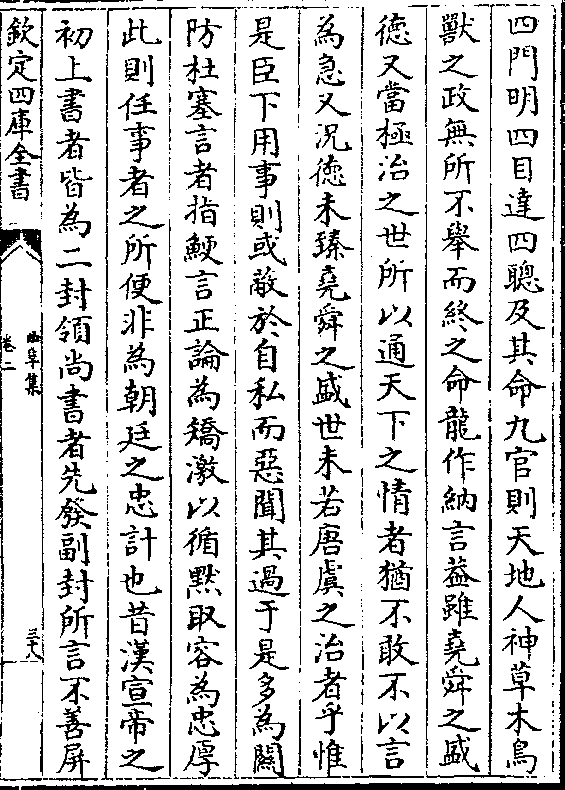 四門明四目達四聰及其命九官則天地人神草木鳥
獸之政無所不舉而終之命龍作納言葢雖堯舜之盛
德又當極治之世所以通天下之情者猶不敢不以言
為急又況德未臻堯舜之盛世未若唐虞之治者乎惟
是臣下用事則或敝於自私而惡聞其過于是多為關
防杜塞言者指鯁言正論為矯激以循黙取容為忠厚
此則任事者之所便非為朝廷之忠計也昔漢宣帝之
初上書者皆為二封領尚書者先發副封所言不善屏
欽定四庫全書
曲阜集
卷二
三十八